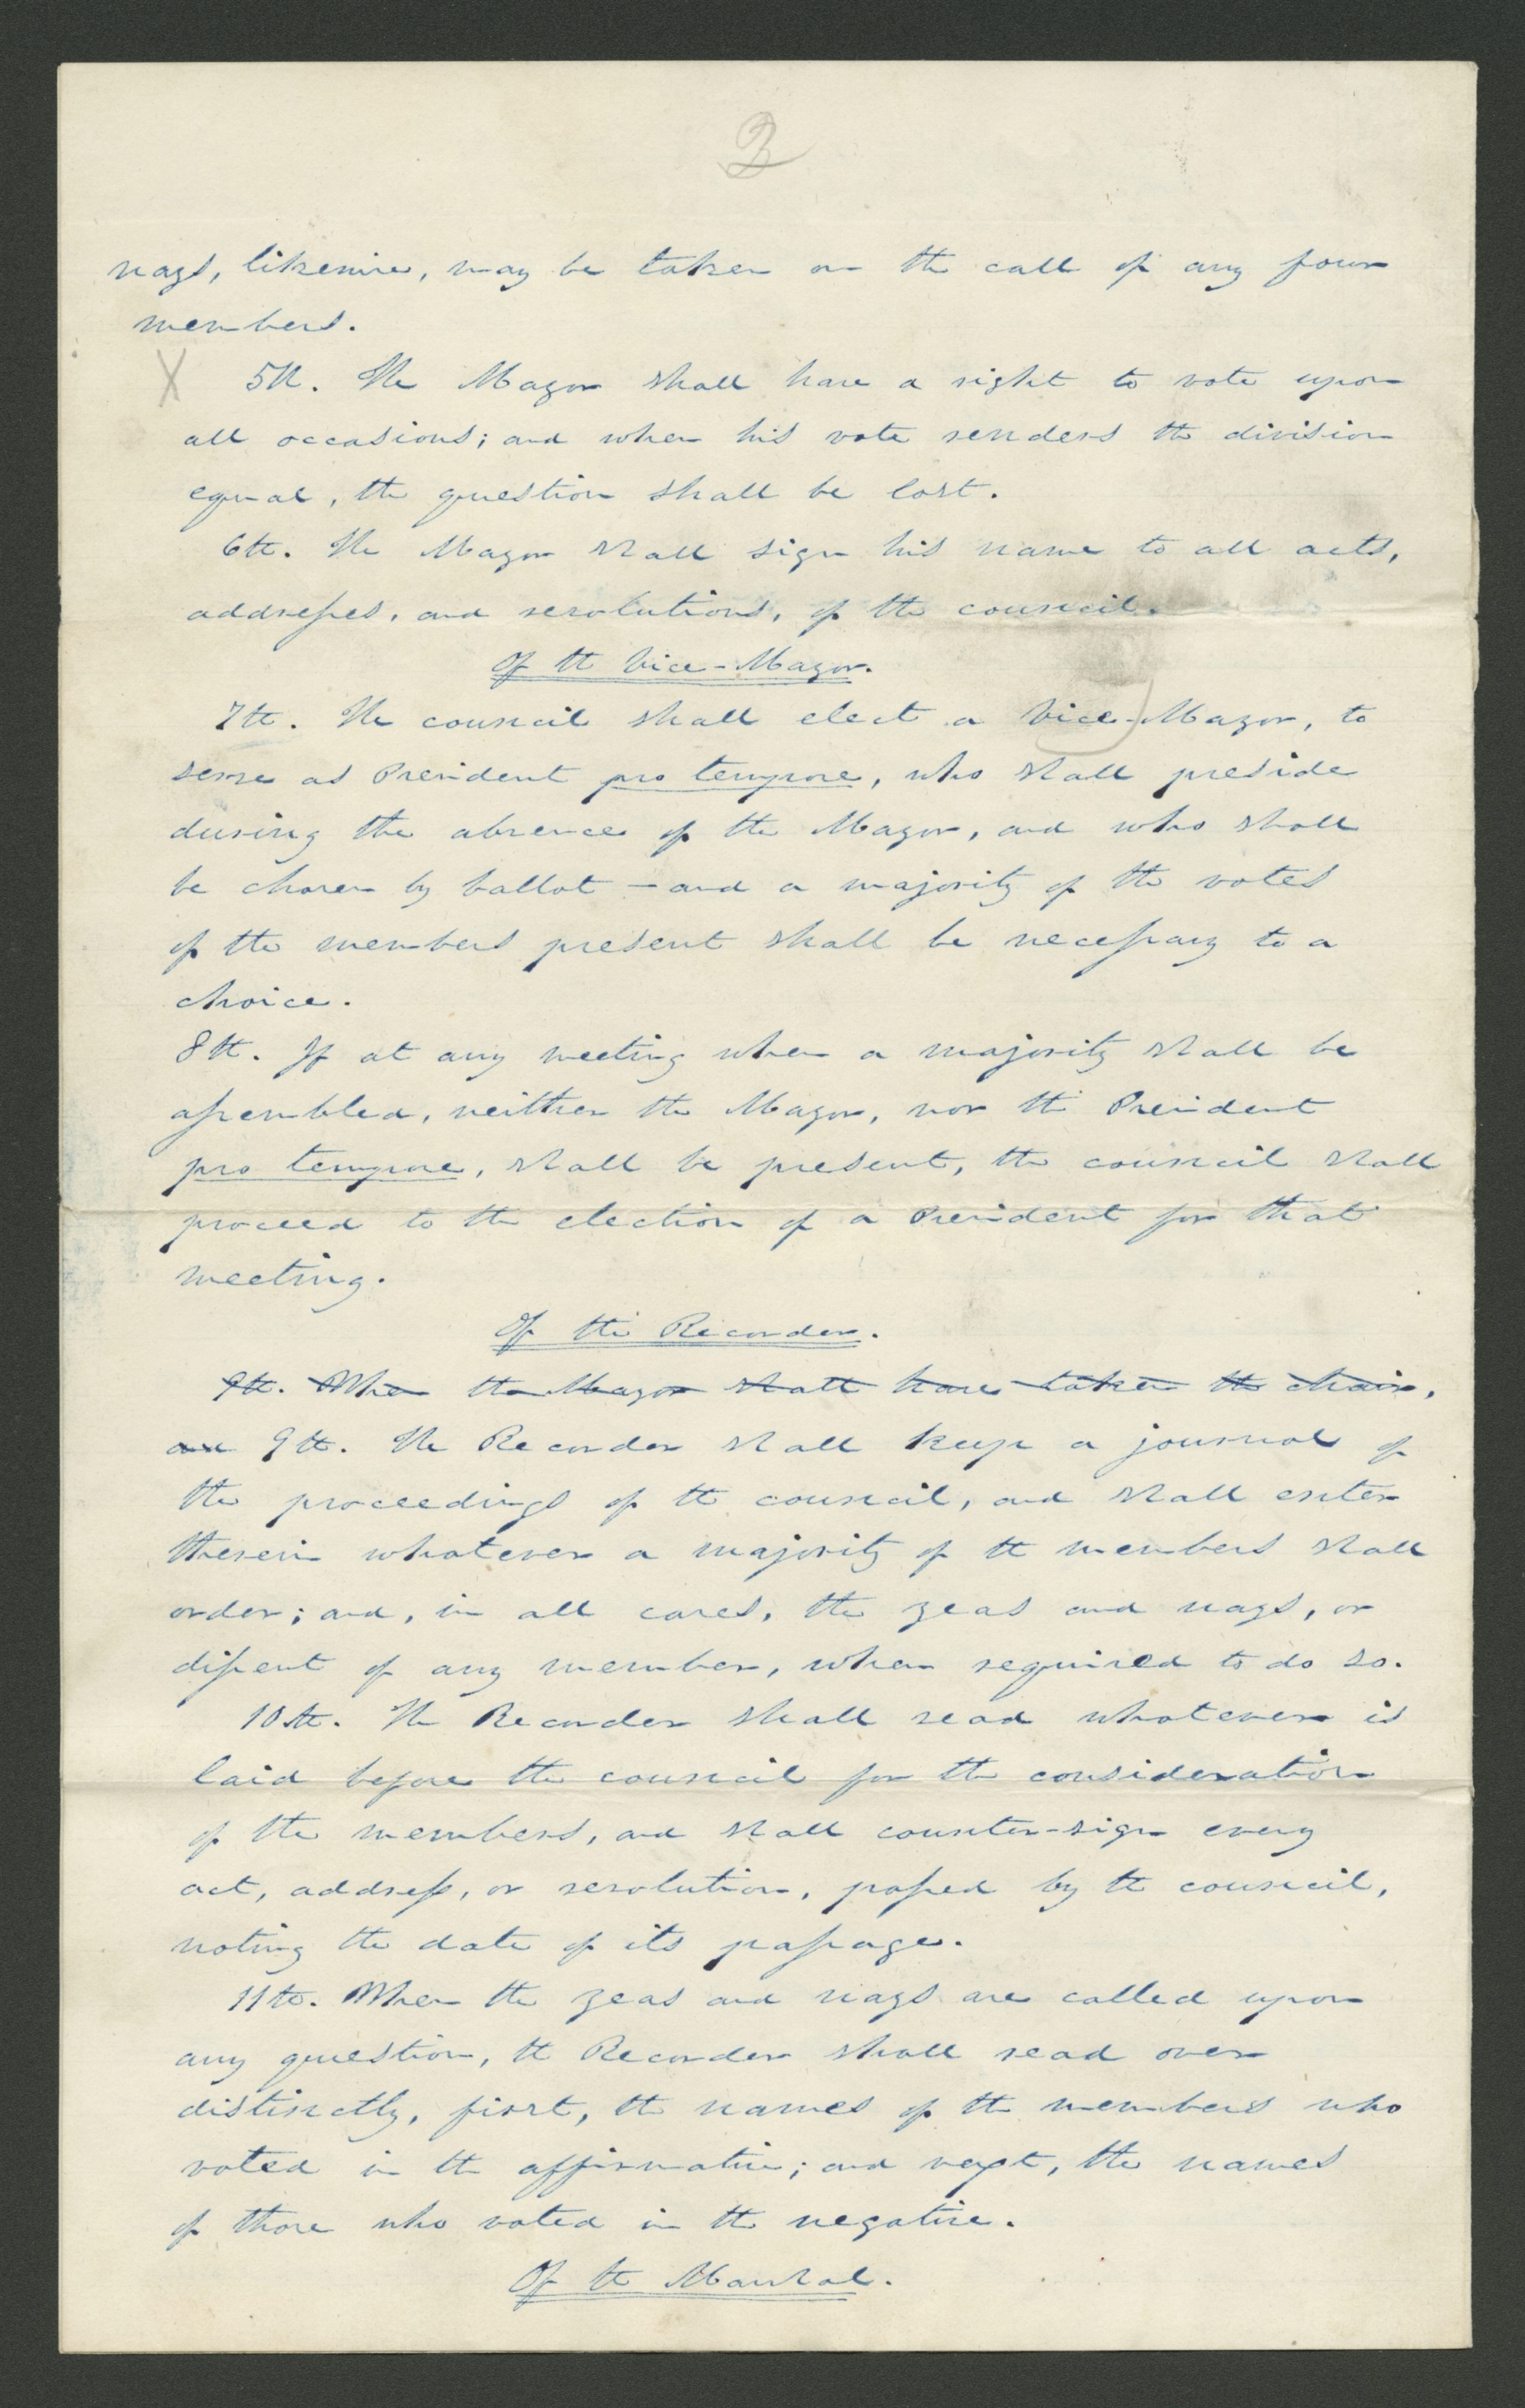 2
nays, likewise, may be taken on the call of any four
members.
X 5th. The Mayor shall have a right to vote upon
all occasions; and when his vote renders the division
equal, the question shall be lost.
6th. The Mayor shall sign his name to all acts,
addresses, and resolutions, of the council.
Of the Vice-Mayor.
7th. The council shall elect a Vice-Mayor, to
serve as President pro tempore, who shall preside
during the absence of the Mayor, and who shall
be chosen by ballot — and a majority of the votes
of the members present shall be necessary to a
choice.
8th. If at any meeting when a majority shall be
assembled, neither the Mayor, nor the President
pro tempore, shall be present, the council shall
proceed to the election of a President for that
meeting.
Of the Recorder.
9th. When the Mayor shall have taken the chair,
and 9th. The Recorder shall keep a journal of
the proceedings of the council, and shall enter
therein whatever a majority of the members shall
order; and, in all cases, the yeas and nays, or
dissent of any member, when required to do so.
10th. The Recorder shall read whatever is
laid before the council for the consideration
of the members, and shall counter-sign every
act, address, or resolution, passed by the council,
noting the date of its passage.
11th. When the yeas and nays are called upon
any question, the Recorder shall read over
distinctly, first, the names of the members who
voted in the affirmative; and next, the names
of those who voted in the negative.
Of the Marshal.